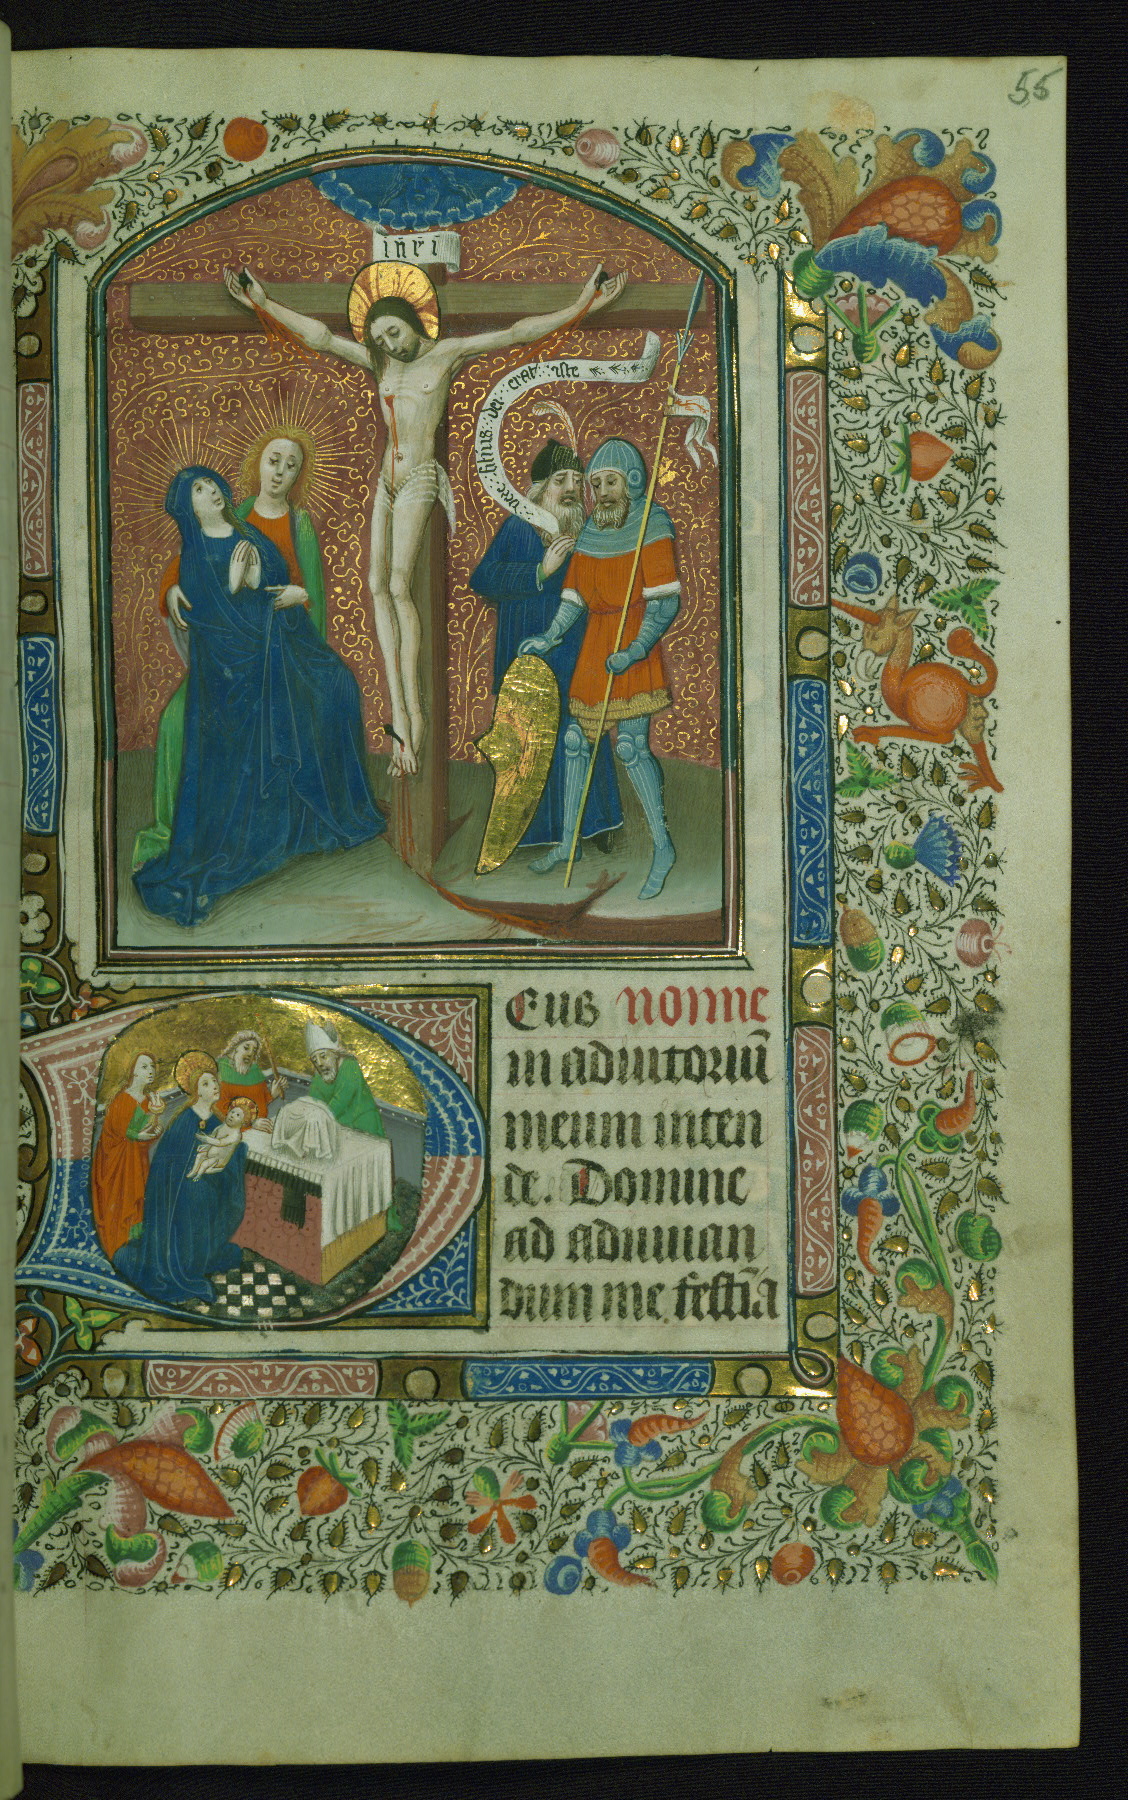 55
inri
vere filius dei erat iste
Eus nonne
in adiutoriū
meum inten
de. Domine
ad adiuuan
dum me festīa